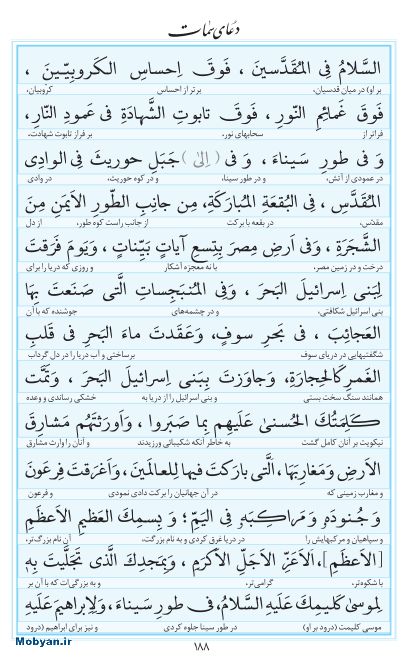 دعای سمات
السَّلامُ فِی المُقَدَّسینَ ، فَوقَ اِحساسِ الکَروبِیّینَ ،
بر او) در میان قدسیان، برتر از احساس کرّوبیان،
فَوقَ غَمائِمِ النّورِ ، فَوقَ تابوتِ الشَّهادَةِ فی عَمودِ النّارِ،
فراتر از سحابهای نور، بر فراز تابوت شهادت،
وَ فی طورِ سَیناءَ ، وَ فی ( اِلیٰ ) جَبَلِ حوریثَ فِی الوادِی
در عمودی از آتش، و در طور سینا، و در کوه حوریث، در وادی
المُقَدَّسِ ، فِی البُقعَةِ المُبارَکَةِ، مِن جانِبِ الطّورِ الاَیمَنِ مِنَ
مقدّس، در بقعه با برکت از جانب راست کوه طور، از دل
الشَّجَرَةِ ، وَفی اَرضِ مِصرَ بِتِسعِ آیاتٍ بَیِّناتٍ ، وَیَومَ فَرَقتَ
درخت و در زمین مصر، با نه معجزه آشکار و روزی که دریا را برای
لِبَنی اِسرائیلَ البَحرَ ، وَفِی المُنبَجِساتِ الَّتی صَنَعتَ بِهَا
بنی اسرائیل شکافتی، و در چشمه‌های جوشنده که با آن
العَجائِبَ ، فی بَحرِ سوفٍ، وَعَقَدتَ ماءَ البَحرِ فی قَلبِ
شگفتیهایی در دریای سوف برساختی و آب دریا را در دل گرداب
الغَمرِ کَالحِجارَةِ، وَجاوَزتَ بِبَنی اِسرائیلَ البَحرَ ، وَتَمَّت
همانند سنگ سخت بستی و بنی اسرائیل را از دریا به خشکی رساندی و وعده
کَلِمَتُكَ الحُسنیٰ عَلَیهِم بِما صَبَروا ، وَاَورَثتَهُم مَشارِقَ
نیکویت بر آنان کامل گشت به خاطر آنکه شکیبائی ورزیدند و آنان را وارث مشارق
الاَرضِ وَمَغارِبَهَا، الَّتی بارَکتَ فیها لِلعالَمینَ، وَاَغرَقتَ فِرعَونَ
و مغارب زمینی که در آن جهانیان را برکت دادی نمودی و فرعون
وَ جُنودَهُ وَ مَراکِبَهُ فِی الیَمِّ؛ وَ بِسمِكَ العَظیمِ الاَعظَمِ
و سپاهیان و مرکبهایش را در دریا غرق کردی و به نام بزرگت، آن نام بزرگ‌تر،
[الاَعظَمِ]، الاَعَزِّ الاَجَلِّ الاَکرَمِ ، وَبِمَجدِكَ الَّذی تَجَلَّیتَ بِهِ
با شکوه‌تر، گرامی‌تر، و به بزرگی‌ات که با آن بر
لِموسیٰ کَلیمِكَ عَلَیهِ السَّلامُ، فی طورِ سَیناءَ، وَلِاِبراهیمَ عَلَیهِ
موسی کلیمت (درود بر او) در طور سینا جلوه کردی و نیز برای ابراهیم (درود
۱۸۸
Mobyan.ir